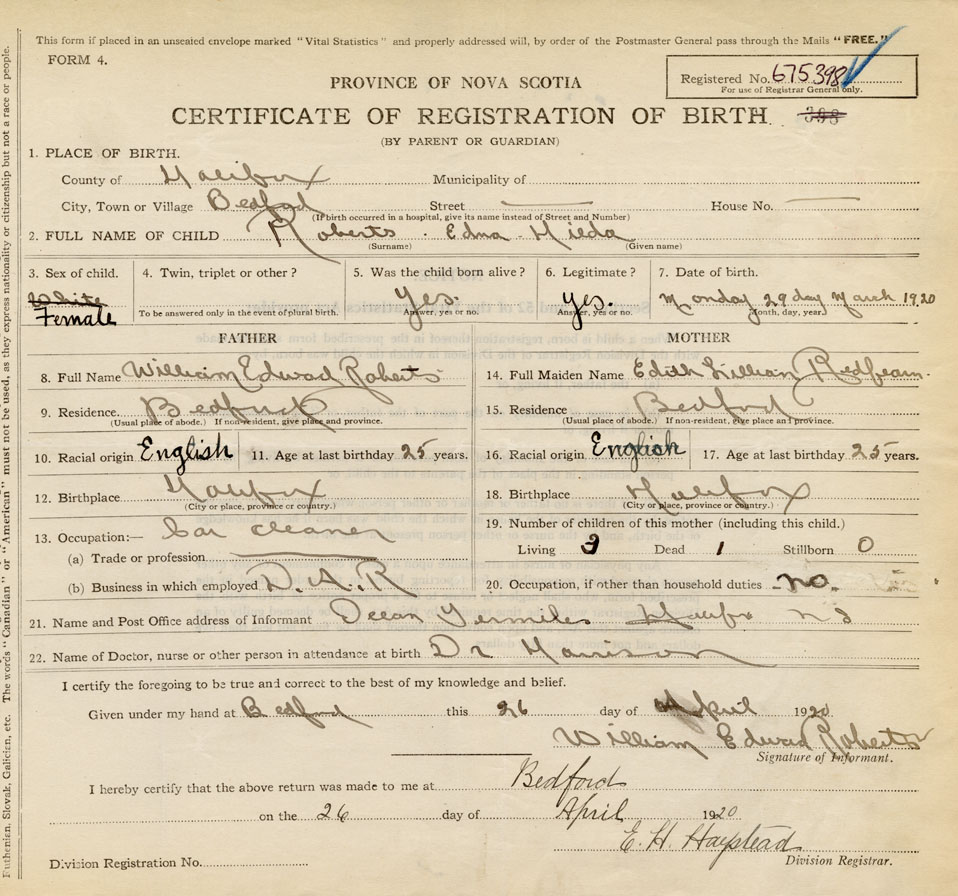 This form if placed in an unsealed envelope marked "Vital Statistics" and properly addressed will, by order of the Postmaster General pass through the Mails "FREE."
FORM 4.
Registered No. 675398
For use of Registrar General only.
PROVINCE OF NOVA SCOTIA
CERTIFICATE OF REGISTRATION OF BIRTH. 398
(BY PARENT OR GUARDIAN)
1. PLACE OF BIRTH.
County of Halifax Municipality of
City, Town or Village Bedford Street House No.
(If birth occurred in a hospital, give its name instead of Street and Number)
2. FULL NAME OF CHILD Roberts . Edna - Hilda
(Surname) (Given name)
3. Sex of child. 4. Twin, triplet or other? 5. Was the child born alive? 6. Legitimate? 7. Date of birth.
White
Female To be answered only in the event of plural birth. Yes. Answer, yes or no. Yes. Answer, yes or no. Monday 29 day March 1920 (Month, day, year.)
FATHER MOTHER
8. Full Name William Edward Roberts 14. Full Maiden Name Edith Lillian Redfearn.
9. Residence. Bedford 15. Residence Bedford
(Usual place of abode.) If non-resident, give place and province. (Usual place of abode.) If non-resident, give place and province.
10. Racial origin English 11. Age at last birthday 25 years. 16. Racial origin English 17. Age at last birthday 25 years.
12. Birthplace Halifax 18. Birthplace Halifax
(City or place, province or country.) (City or place, province or country.)
13. Occupation:— Car cleaner 19. Number of children of this mother (including this child.)
(a) Trade or profession Living Dead 1 Stillborn 0
(b) Business in which employed D. A. R 20. Occupation, if other than household duties no.
21. Name and Post Office address of Informant Halifx N S
22. Name of Doctor, nurse or other person in attendance at birth Dr Morrison
I certify the foregoing to be true and correct to the best of my knowledge and belief.
Given under my hand at Bedford this 26 day of April 1920
William Edward Roberts
Signature of Informant.
I hereby certify that the above return was made to me at Bedford
on the 26 day of April 1920
E. H. Haystead
Division Registrar.
Division Registration No.
Ruthenian, Slovak, Galician, etc. The words "Canadian" or "American" must not be used, as they express nationality or citizenship but not a race or people.